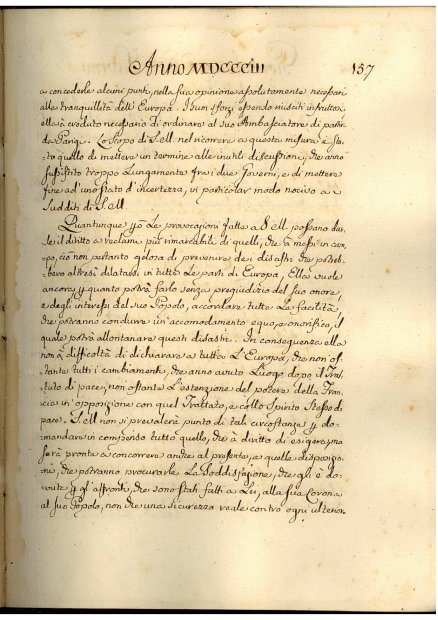 Anno MDCCCIII 157
a concederle alcuni punti, nella sua opinione assolutamente necessari
alla tranquillità dell' Europa. I suoi sforzi essendo riusciti infruttosi
ella à creduto necessario di ordinare al suo Ambasciatore di partir
da Parigi. Lo scopo di S.M. nel ricorrere a questa misura è sta-
to quello di mettere un termine alle inutili discussioni, che anno
sussistito troppo lungamente fra i due Governi, e di mettere
fine ad uno stato d'incertezza, in particolar modo nocivo a i
sudditi di S.M.
Quantunque le provocazioni fatte a S.M. possano dar-
le il diritto a reclami più rimarcabili di quelli, che à messi in cam-
po, ciò non pertanto gelosa di prevenire dei disastri che potreb-
bero altresì dilatarsi in tutte le parti di Europa, Ella vuole
ancora, quanto potrà farlo senza pregiudizio del suo onore,
e degli interessi del suo Popolo, accordare tutte le facilità,
che potranno condurre un'accomodamento equo, e onorifico, il
quale potrà allontanare questi disastri. In conseguenza ella
non à difficoltà di dichiarare a tutta l'Europa, che non os-
tante tutti i cambiamenti, che anno avuto luogo dopo il Trat-
tato di pace, non ostante l'estenzione del potere della Fran-
cia in opposizione con quel Trattato, e collo spirito stesso di
pace. S.M. non si prevalerà punto di tali circostanze do-
mandare in compenso tutto quello, che à diritto di esigere, ma
sarà pronta a concorrere anche al presente, a quelle disposizio-
ni, che potranno procurarle la soddisfazione, che gli è do-
vuta gl'affronti, che sono stati fatti a Lei, alla sua Corona
al suo Popolo, non che una sicurezza reale contro ogni ulterior